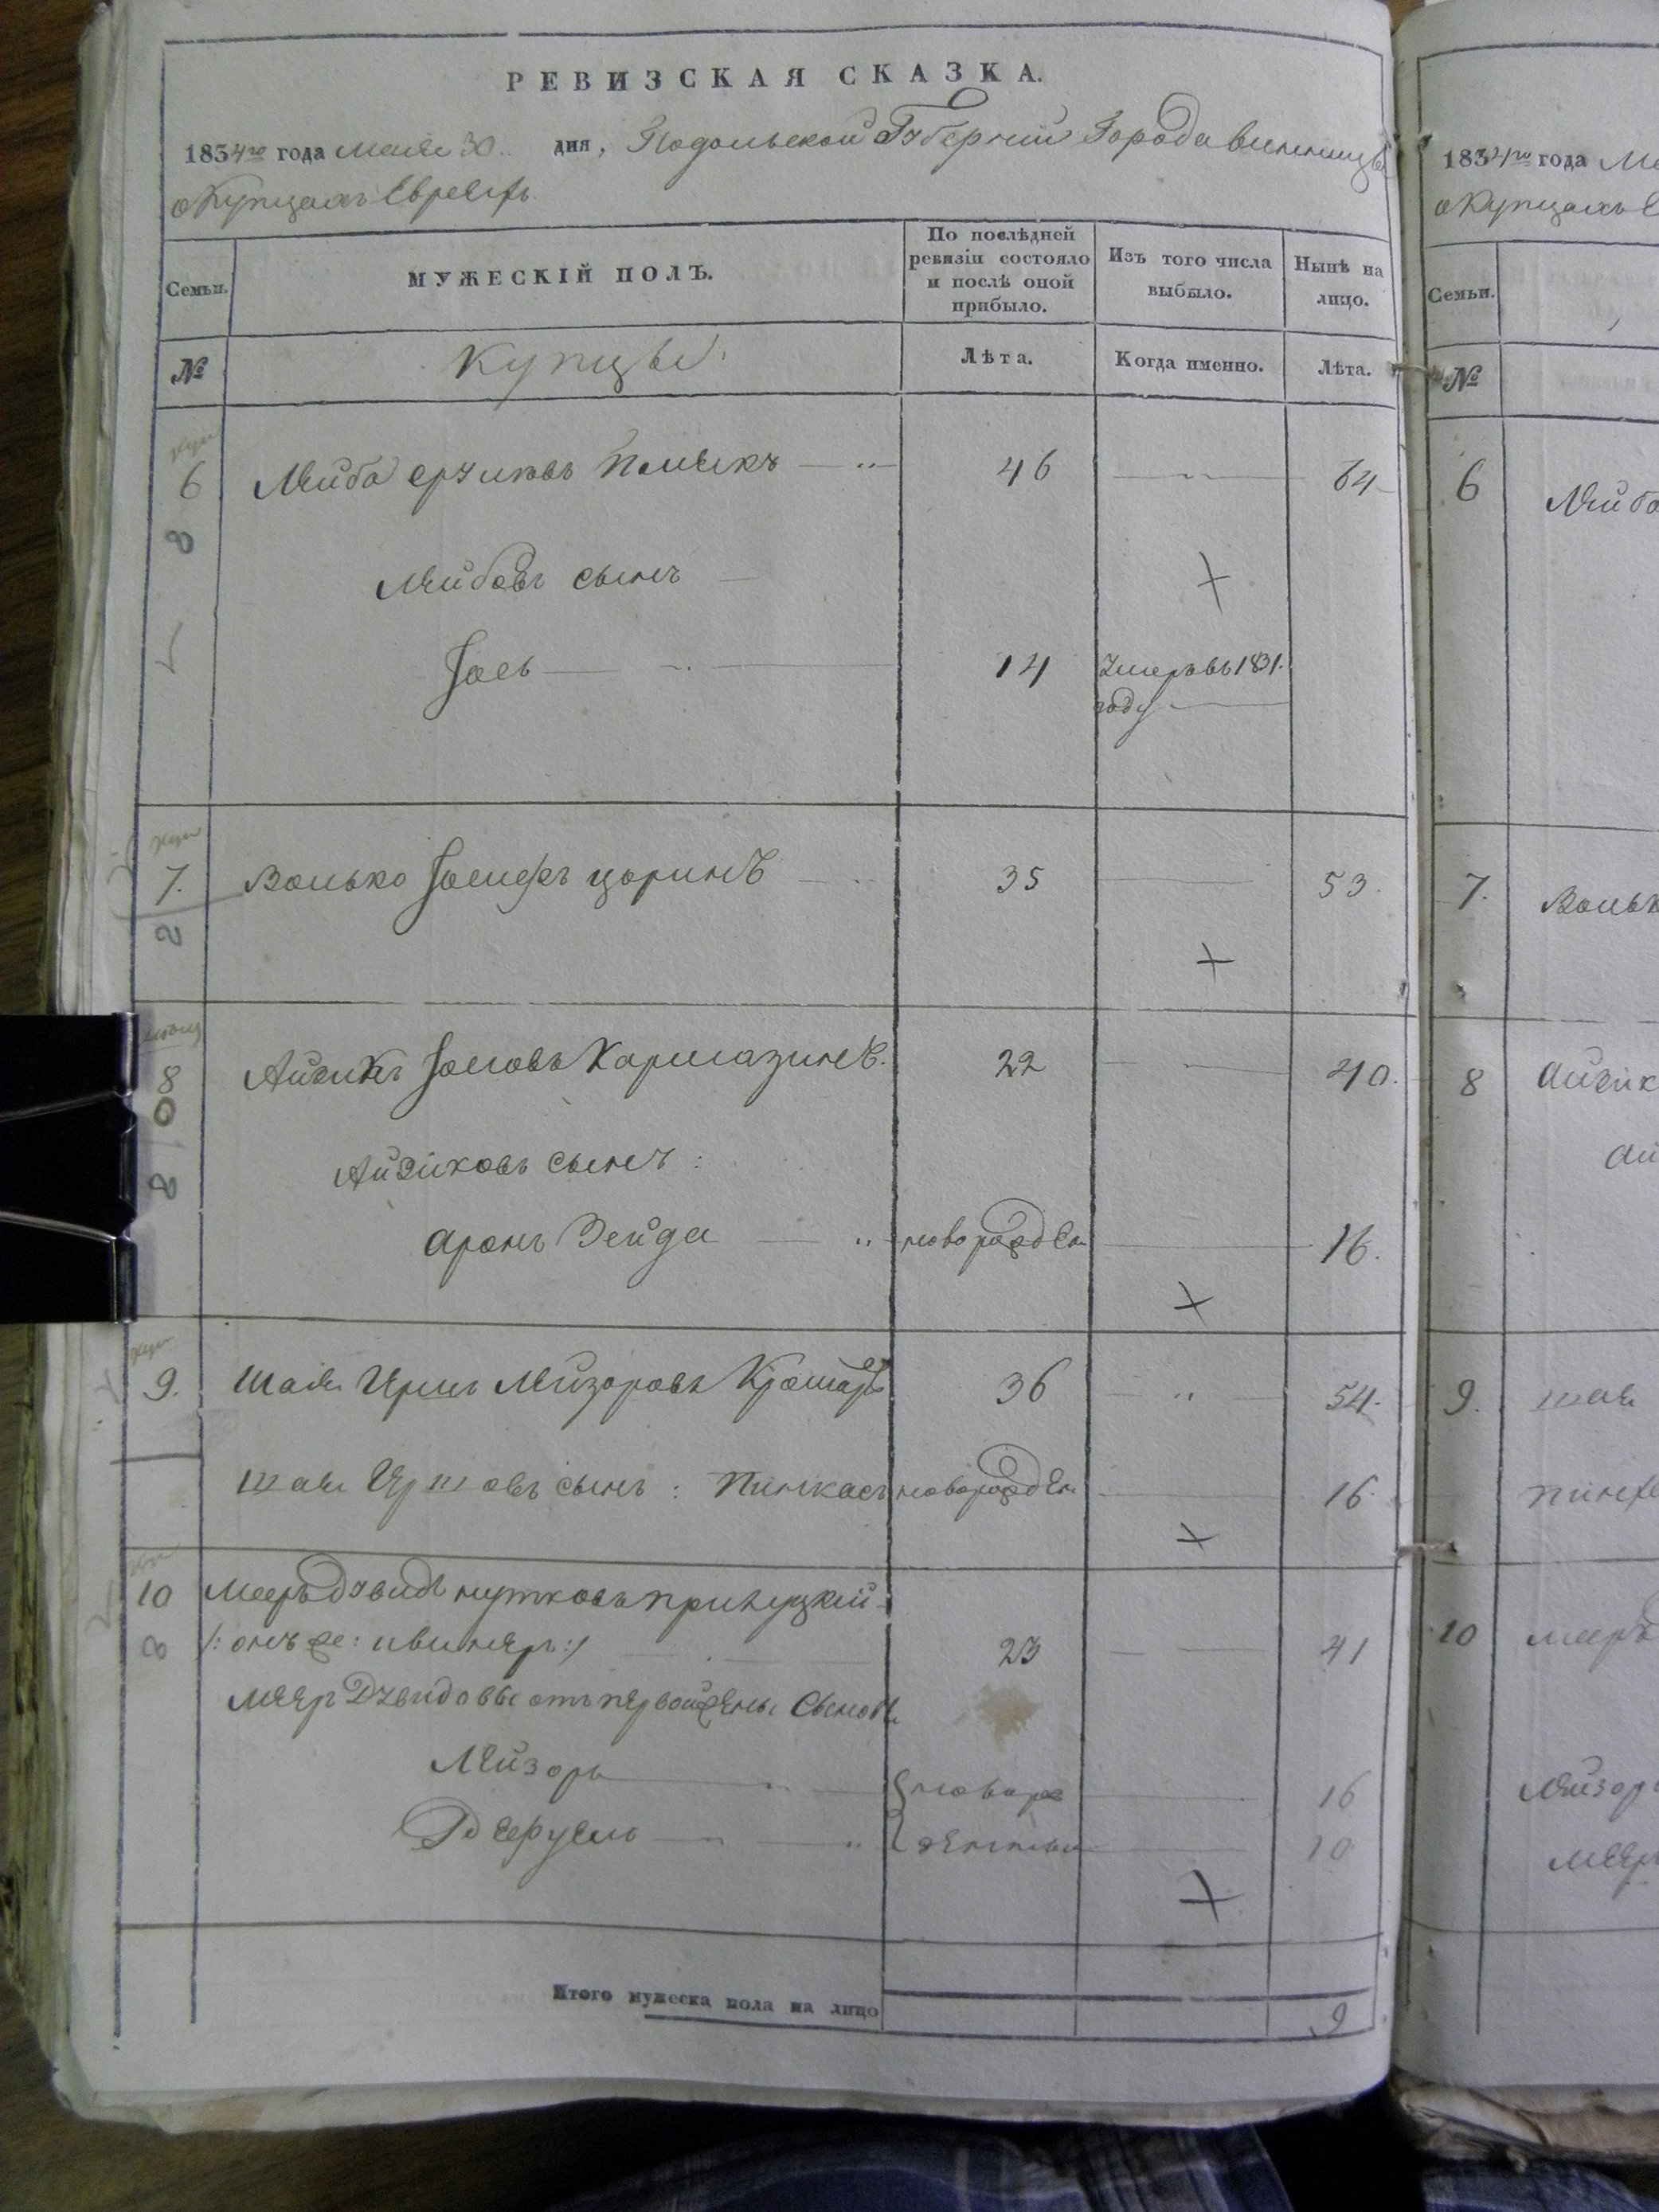 РЕВИЗСКАЯ СКАЗКА.
1834го года маія 30 дня, Подольской Губерніи Города Винницы
о Купцахъ Евреяхъ.
Семьи.
МУЖЕСКІЙ ПОЛЪ.
По послѣдней ревизіи состояло и послѣ оной прибыло.
Изъ того числа выбыло.
Нынѣ на лицо.
№
Купцы.
Лѣта.
Когда именно.
Лѣта.
6 Лейба 46 64
Лейбовъ сынъ
Іось 14 Умеръ въ 1831.
году
7. Волько Іосифъ 35 53.
8 Айзикъ Іосіовъ Кармазинъ. 22 40.
Айзиковъ сынъ:
Аронъ Зейда новорожден 16.
9. Шая Иршъ Лейзоровъ 36 54.
Шая Иршовъ сынъ: Пинкасъ новорожден 16.
10 Мееръ Дувидъ Нутковъ Прилуцкій
/: онъ же: :/ 23 41
Меер Дувидовы отъ первой жены Сыновья
Лейзоръ новорож 16
денные 10
Итого мужеска пола на лицо 9
1834го года
о Купцахъ
Семьи.
№
6
7.
8 Айзик
9. Шая
10 Мееръ